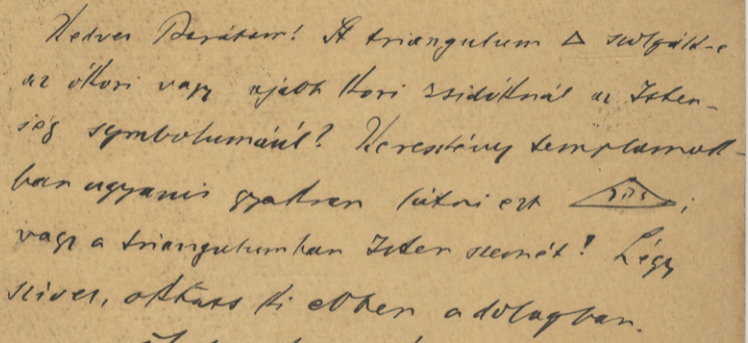 Kedves Barátom! A triangulum △ szolgált-e
az ókori vagy ujabb kori zsidóknál az Isten-
ség symbolumául? Keresztény templomok-
ban ugyanis gyakran látni ezt יהוה;
vagy a triangulumban Isten szemét! Légy
szives, oktass ki ebben a dologban.